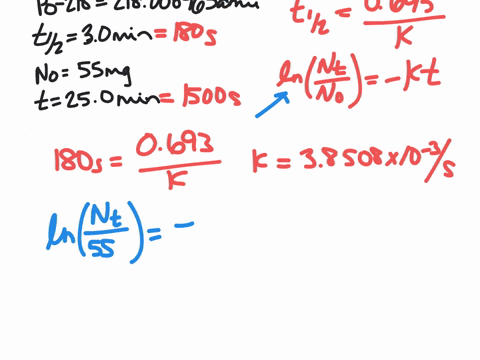 t1/2 = 3.0min = 180s
N0 = 55mg
t = 25.0min = 1500s
t1/2 = 0.693/K
ln(Nt/N0) = -Kt
180s = 0.693/K K = 3.8508x10^-3/s
ln(Nt/55) = -